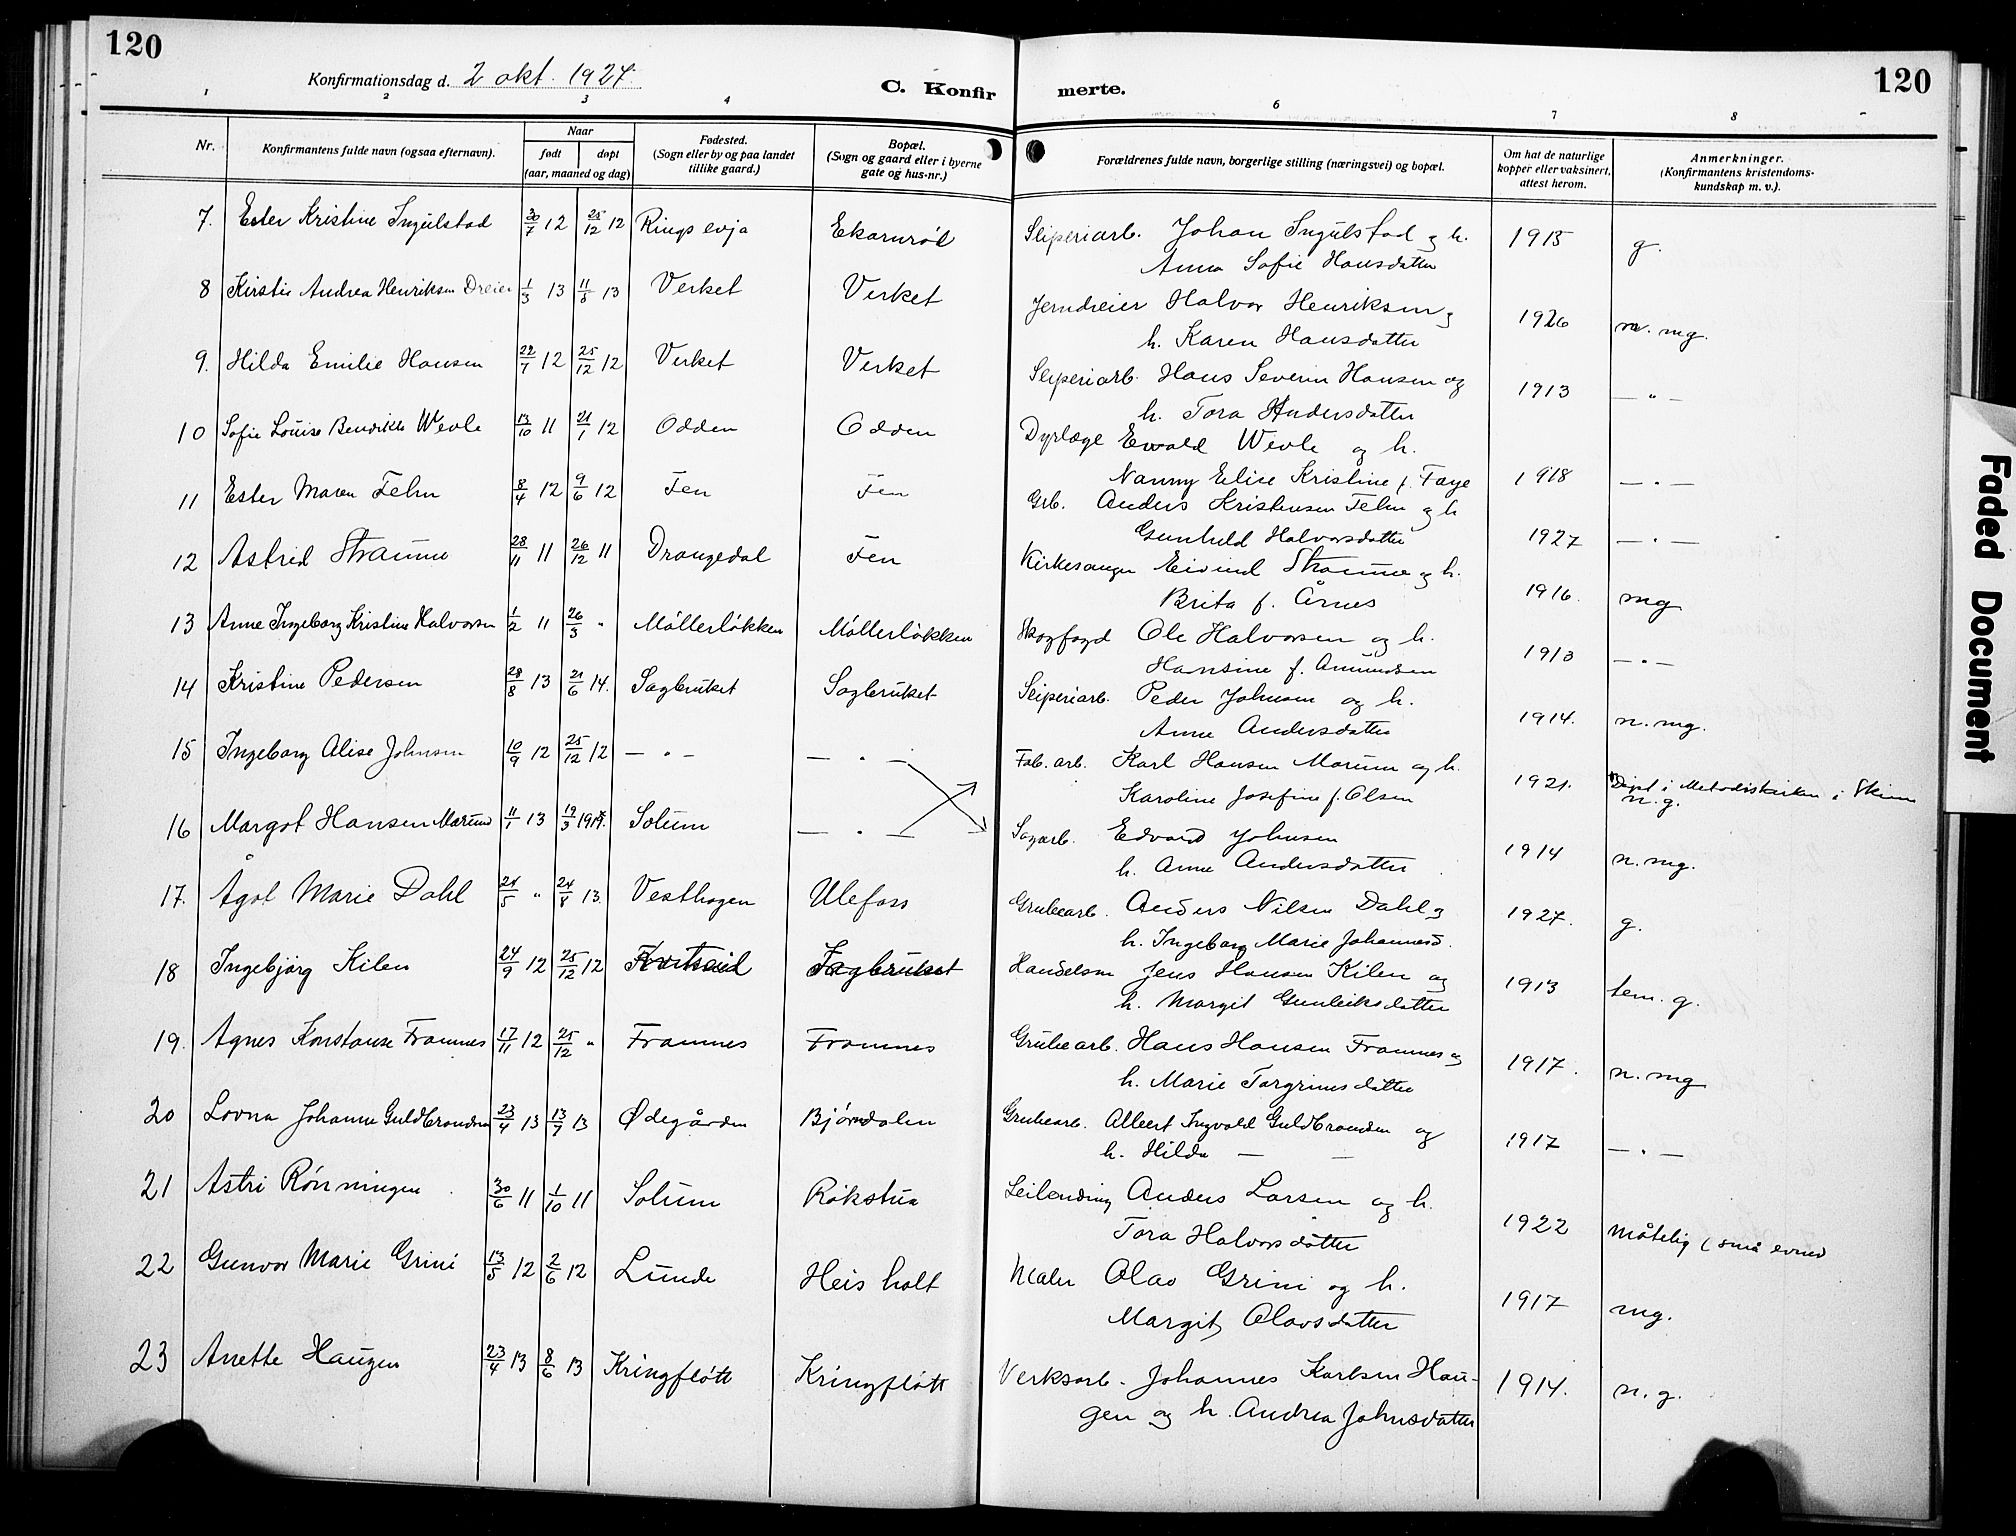 120
120
Konfirmationsdag d. 2 okt. 1927.
C. Konfirmerte.
1 2 3 4 6 7 8
Nr.
Konfirmantens fulde navn (ogsaa efternavn).
Naar
født døpt
(aar, maaned og dag)
Fødested.
(Sogn eller by og paa landet
tillike gaard.)
Bopæl.
(Sogn og gaard eller i byerne
gate og hus-nr.)
Forældrenes fulde navn, borgerlige stilling (næringsvei) og bopæl.
Om hat de naturlige
kopper eller vaksinert,
attest herom.
Anmerkninger.
(Konfirmantens kristendoms-
kundskap m. v.).
7. Ester Kristine Ingulstad 30/7 12 25/12 12 Ringsevja Ekornrød Sliperiarb. Johan Ingulstad og h. 1915 g.
Anna Sofie Hansdatter
8 Kirstie Andrea Henriksen Dreier 1/3 13 11/5 13 Verket Verket Jerndreier Halvor Henriksen og 1926 n. mg.
h. Karen Hansdatter
9. Hilda Emilie Hansen 22/7 12 25/12 12 Verket Verket Sliperiarb. Hans Severin Hansen og 1913 — " —
h. Tora Andersdatter
10 Sofie Louise Bendikte Wevle 13/10 11 21/1 12 Odden Odden Dyrlæge Ewald Wevle og h. 1918 — " —
Nanny Elise Kristine f. Faye
11 Ester Maren Fehn 8/4 12 9/6 12 Fen Fen Grb. Anders Kristensen Fehn og h 1927 — " —
Gunhild Halvorsdatter
12 Astrid Straume 28/11 11 26/12 11 Drangedal Fen Kirkesanger Eivind Straume og h. 1916. mg
Brita f. Årnes
13 Anne Ingeborg Kristine Halvorsen 1/2 11 26/3 " Møllerløkken Møllerløkken Skogfogd Ole Halvorsen og h. 1913 — " —
Hansine f. Amundsen
14 Kristine Pedersen 28/8 13 21/6 14. Sagbruket Sagbruket Sliperiarb. Peder Johnsen og h. 1914. n. mg.
Anne Andersdatter
15 Ingeborg Alise Johnsen 10/9 12 25/12 12 — " — — " — Fab. arb. Karl Hansen Marum og h. 1921. Døpt i Metodistkirken i Skien
n. g.
Karoline Josefine f. Olsen
16 Margot Hansen Marum 11/1 13 19/3 1914. Solum — " — Sagarb. Edvard Johnsen 1914 n. mg.
h. Anne Andersdatter
17. Ågot Marie Dahl 24/5 " 24/8 13. Vesthagen Ulefoss Grubearb. Anders Nilsen Dahl og 1927. g.
h. Ingeborg Marie Johannesd.
18 Ingebjörg Kilen 24/9 12 25/12 12 Kvitseid Sagbruket Handelsm Jens Hansen Kilen og 1913 tem. g.
h. Margit Gunleiksdatter
19. Agnes Konstanse Framnes 17/11 12 25/12 " Framnes Framnes Grubearb. Hans Hansen Framnes og 1917. n. mg
h. Marie Torgrimsdatter
20 Lovna Johanne Guldbrandsen 23/4 13 13/7 13 Ødegården Bjørndalen Grubearb. Albert Ingvald Guldbrandsen og 1917 — " —
h. Hilda — —
21 Astri Rønningen 30/6 11 1/10 11 Solum Røkstua Leilending Anders Larsen og h. 1922 måtelig (små evner
Tora Halvorsdatter
22 Gunvor Marie Grini 13/5 12 2/6 12 Lunde Heisholt Maler Olav Grini og h. 1917 mg.
Margit Olavsdatter
23 Anette Haugen 23/4 13 8/6 13 Kringfløtt Kringfløtt Verksarb. Johannes Karlsen Hau- 1914. n. g.
gen og h. Andrea Johnsdatter
Faded Document